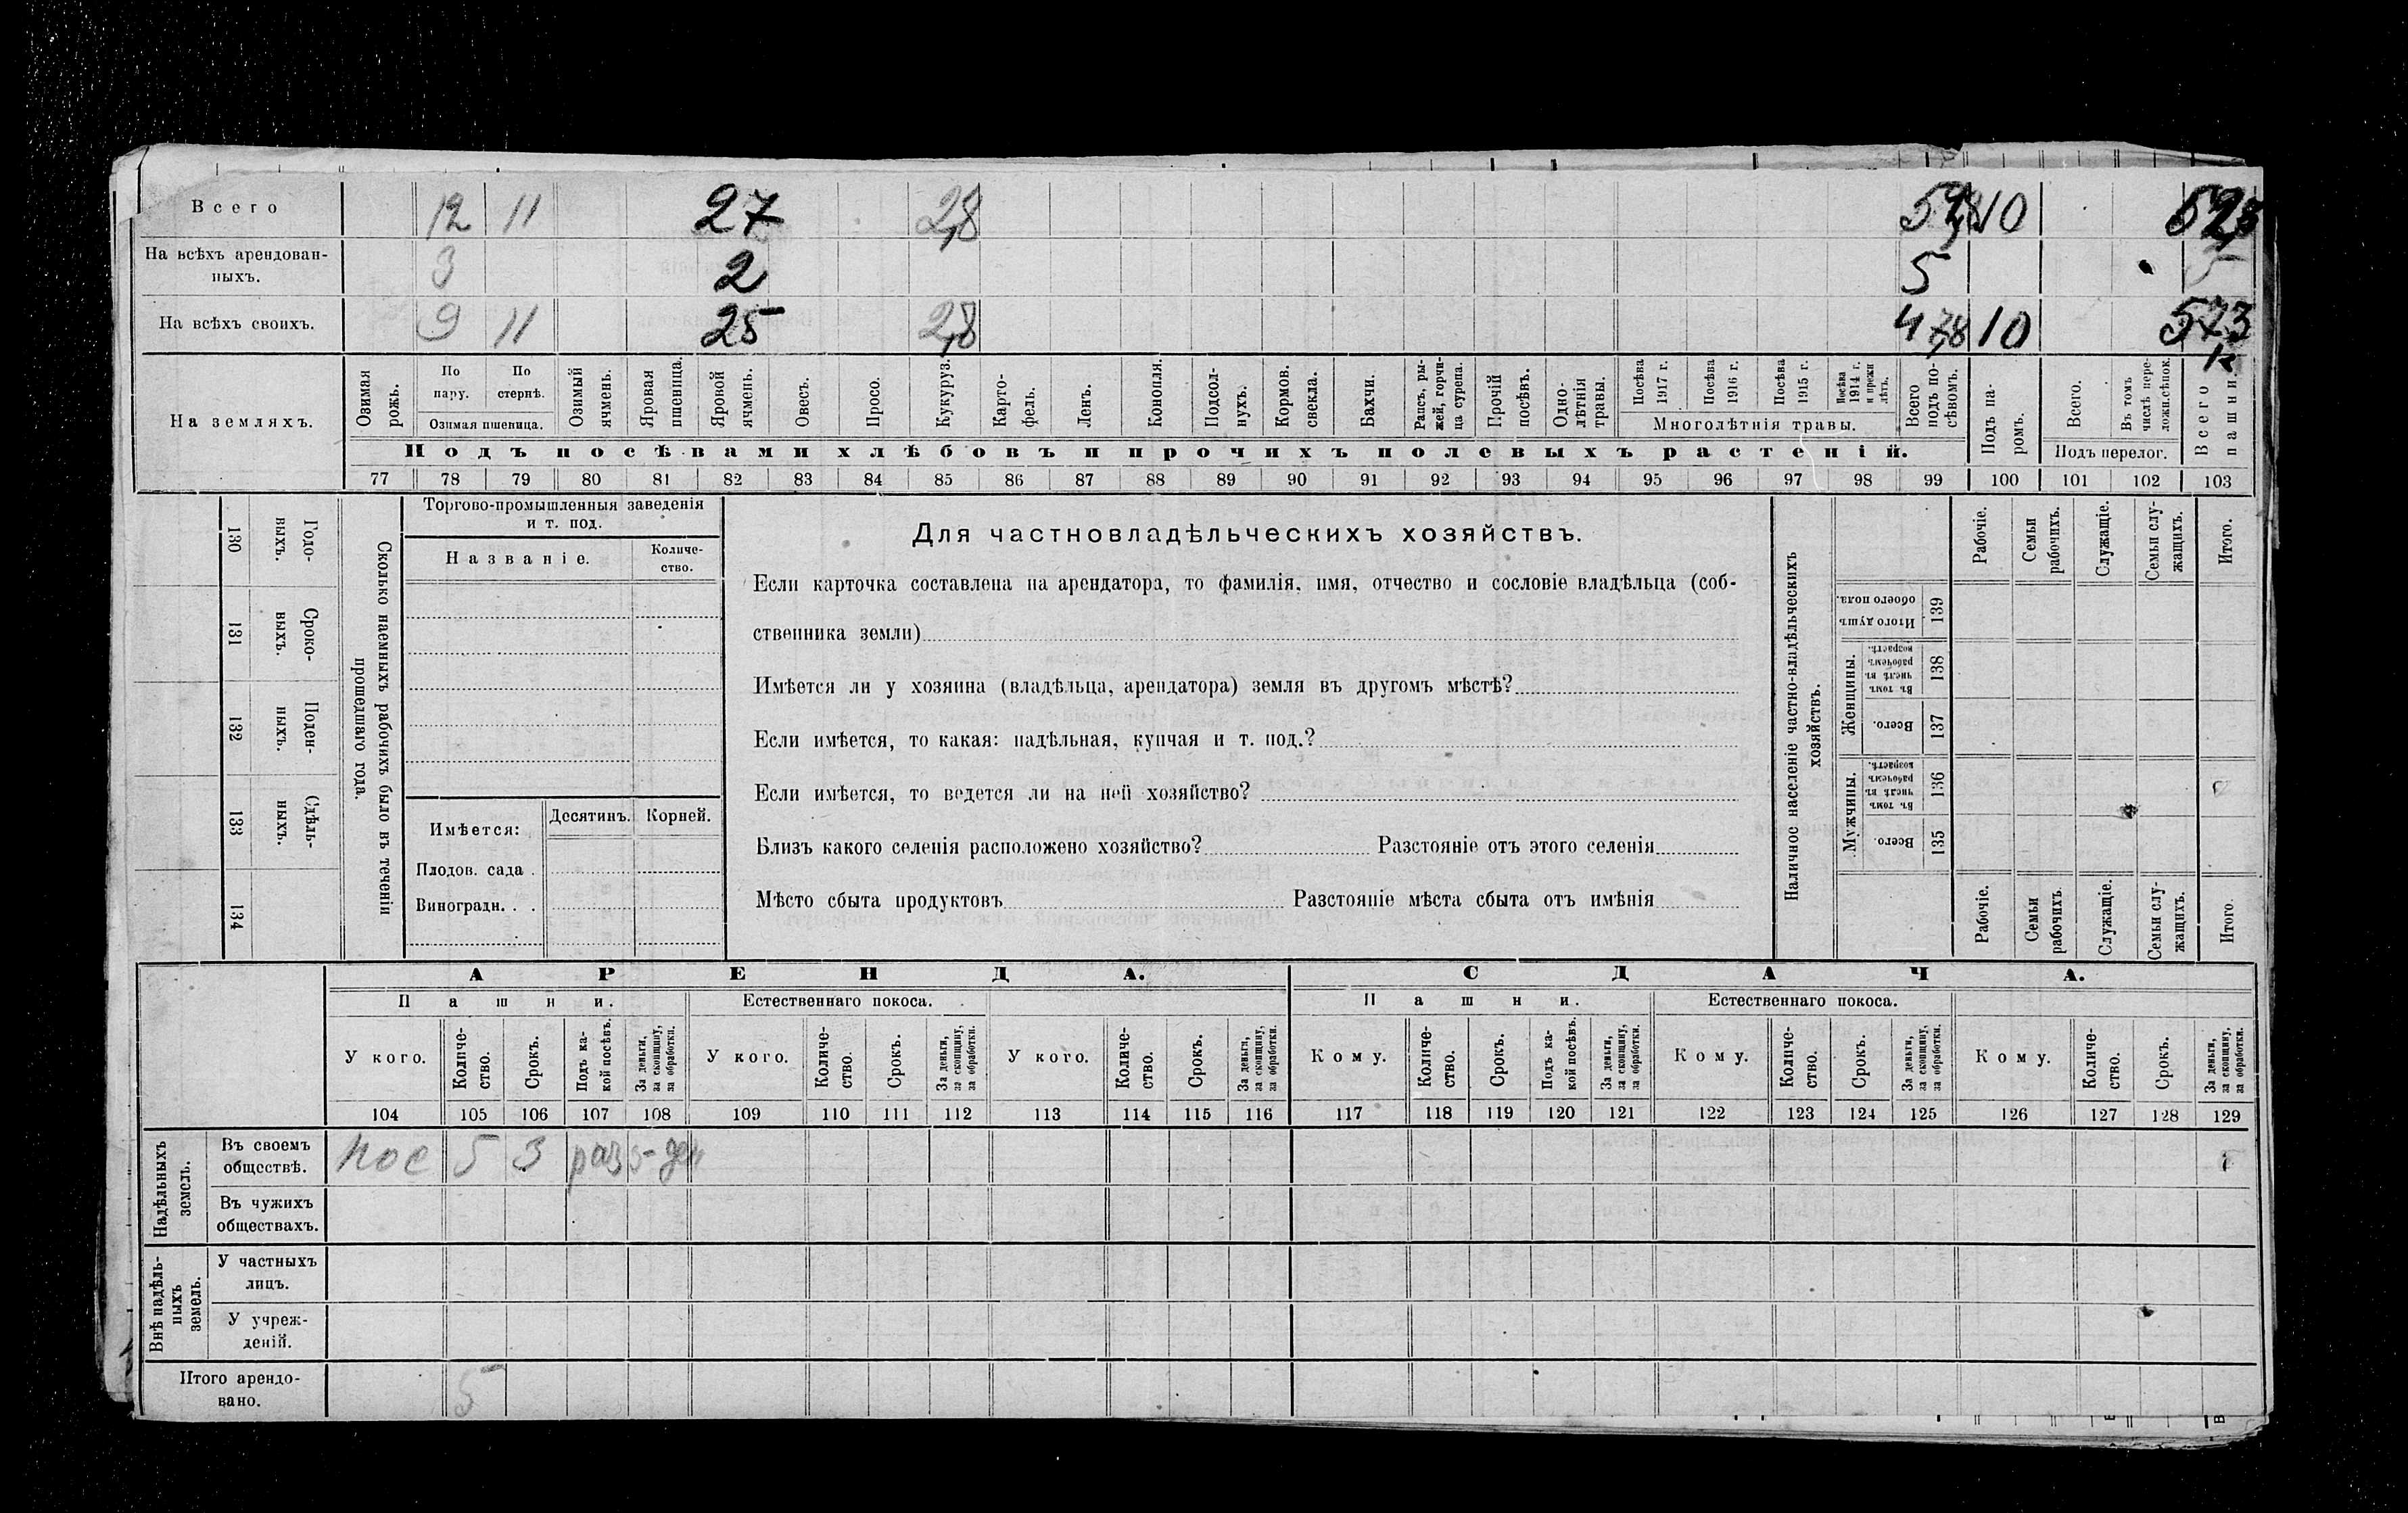 Всего 12 11 27 2,8 10
На всѣхъ арендован-
ныхъ. 3 2 5 5
На всѣхъ своихъ. 9 11 25 2,8 47,8 10 573
На земляхъ.
Озимая рожь.
По пару.
По стернѣ.
Озимая пшеница.
Озимый ячмень.
Яровая пшеница.
Яровой ячмень.
Овесъ.
Просо.
Кукуруз.
Карто-
фель.
Ленъ.
Конопля.
Подсол-
нухъ.
Кормов. свекла.
Бахчи.
Рапсъ, ры-
жей, горчи-
ца сурепа.
Прочій посѣвъ.
Одно-
лѣтнія травы.
Посѣва 1917 г.
Посѣва 1916 г.
Посѣва 1915 г.
Посѣва 1914 г. и прежн лѣтъ.
Многолѣтнія травы.
Всего подъ по-
сѣвомъ.
Подъ па-
ромъ.
Всего.
Въ томъ числѣ пере-
ложн.сѣнок.
Подъ перелог.
Всего пашни.
Подъ посѣвами хлѣбовъ и прочихъ полевыхъ растеній.
77 78 79 80 81 82 83 84 85 86 87 88 89 90 91 92 93 94 95 96 97 98 99 100 101 102 103
130 Годо-
выхъ.
131 Сроко-
выхъ.
132 Поден-
ныхъ.
133 Сдѣль-
ныхъ.
134
Сколько наемныхъ рабочихъ было въ теченіи
прошедшаго года.
Торгово-промышленныя заведенія
и т. под.
Названіе.
Количе-
ство.
Имѣется:
Десятинъ. Корней.
Плодов. сада .
Виноградн. . .
Для частновладѣльческихъ хозяйствъ.
Если карточка составлена на арендатора, то фамилія, имя, отчество и сословіе владѣльца (соб-
ственника земли)
Имѣется ли у хозяина (владѣльца, арендатора) земля въ другомъ мѣстѣ?
Если имѣется, то какая: надѣльная, купчая и т. под.?
Если имѣется, то ведется ли на ней хозяйство?
Близъ какого селенія расположено хозяйство? Разстояніе отъ этого селенія
Мѣсто сбыта продуктовъ Разстояніе мѣста сбыта отъ имѣнія
Наличное населеніе частно-владѣльческихъ
хозяйствъ.
Рабочіе.
Семьи рабочихъ.
Служащіе.
Семьи слу-
жащихъ.
Итого.
Итого душъ обоего пола. 139
Женщины.
Въ томъ числѣ въ рабочемъ возрастѣ. 138
Всего. 137
Мужчины.
Въ томъ числѣ въ рабочемъ возрастѣ. 136
Всего. 135
Рабочіе.
Семьи рабочихъ
Служащіе.
Семьи слу-
жащихъ.
Итого.
АРЕНДА. СДАЧА.
Пашни. Естественнаго покоса. Пашни. Естественнаго покоса.
У кого.
Количе-
ство.
Срокъ.
Подъ ка-
кой посѣвъ.
За деньги, за скопщину, за обработки.
У кого.
Количе-
ство.
Срокъ.
За деньги, за скопщину, за обработки.
У кого.
Количе-
ство.
Срокъ.
За деньги, за скопщину, за обработки.
Кому.
Количе-
ство.
Срокъ.
Подъ ка-
кой посѣвъ.
За деньги, за скопщину, за обработки.
Кому.
Количе-
ство.
Срокъ.
За деньги, за скопщину, за обработки.
Кому.
Количе-
ство.
Срокъ.
За деньги, за скопщину, за обработки.
104 105 106 107 108 109 110 111 112 113 114 115 116 117 118 119 120 121 122 123 124 125 126 127 128 129
Надѣльныхъ
земель.
Въ своемъ
обществѣ. пос 5 3 раз ден
Въ чужихъ
обществахъ.
Внѣ надѣль-
ныхъ
земель.
У частныхъ
лицъ.
У учреж-
деній.
Итого арендо-
вано. 5